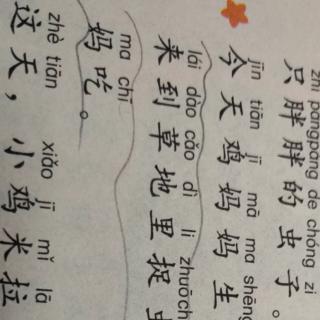 zhī pàngpàng de chóng zi
只胖胖的虫子。
jīn tiān jī mā ma shēng
今天鸡妈妈生
lái dào cǎo dì li zhuō
来到草地里捉
ma chī
妈吃。
zhè tiān xiǎo jī mǐ lā
这天，小鸡米拉